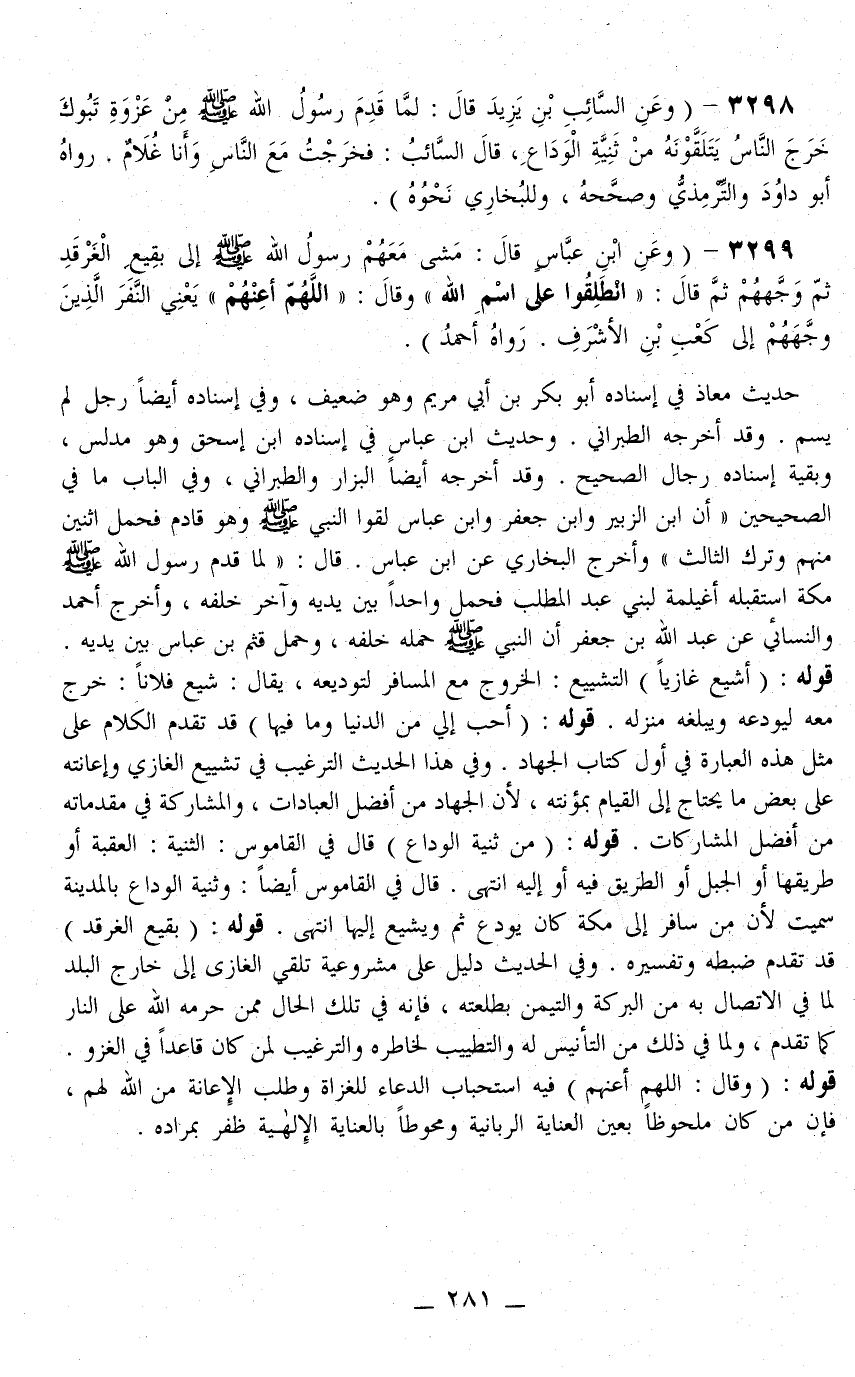 ٣٢٩٨ – ( وعَنِ السَّائِبِ بْنِ يَزِيدَ قالَ : لمَّا قَدِمَ رسُولُ الله ﷺ مِنْ غَزْوَةِ تَبُوكَ
خَرَجَ النَّاسُ يَتَلَقَّوْنَهُ منْ ثَنِيَّةِ الْوَدَاعِ ، قالَ السَّائبُ : فخرَجْتُ مَعَ النَّاسِ وَأَنا غُلَامٌ . رواهُ
أبو داوُدَ والتِّرْمِذيُّ وصحَّحهُ ، وللبُخارِي نَحْوُهُ ) .
٣٢٩٩ – ( وعَنِ ابْنِ عبَّاسٍ قالَ : مَشى مَعَهُمْ رسولُ الله ﷺ إلى بقِيعِ الْغَرْقَدِ
ثمّ وَجَّههُمْ ثمَّ قالَ : « انْطَلِقُوا على اسْمِ الله » وقالَ : « اللَّهُمّ أعِنْهُمْ » يَعْنِي النَّفَرَ الَّذِينَ
وجَّهَهُمْ إلى كَعْبِ بْنِ الأشْرَفِ . رَواهُ أحمدُ ) .
حديث معاذ في إسناده أبو بكر بن أبي مريم وهو ضعيف ، وفي إسناده أيضاً رجل لم
يسم . وقد أخرجه الطبراني . وحديث ابن عباس في إسناده ابن إسحق وهو مدلس ،
وبقية إسناده رجال الصحيح . وقد أخرجه أيضاً البزار والطبراني ، وفي الباب ما في
الصحيحين « أن ابن الزبير وابن جعفر وابن عباس لقوا النبي ﷺ وهو قادم فحمل اثنين
منهم وترك الثالث » وأخرج البخاري عن ابن عباس . قال : « لما قدم رسول الله ﷺ
مكة استقبله أغيلمة لبني عبد المطلب فحمل واحداً بين يديه وآخر خلفه ، وأخرج أحمد
والنسائي عن عبد الله بن جعفر أن النبي ﷺ حمله خلفه ، وحمل قثم بن عباس بين يديه .
قوله : ( أشيع غازياً ) التشييع : الخروج مع المسافر لتوديعه ، يقال : شيع فلاناً : خرج
معه ليودعه ويبلغه منزله . قوله : ( أحب إلي من الدنيا وما فيها ) قد تقدم الكلام على
مثل هذه العبارة في أول كتاب الجهاد . وفي هذا الحديث الترغيب في تشييع الغازي وإعانته
على بعض ما يحتاج إلى القيام بمؤنته ، لأن الجهاد من أفضل العبادات ، والمشاركة في مقدماته
من أفضل المشاركات . قوله : ( من ثنية الوداع ) قال في القاموس : الثنية : العقبة أو
طريقها أو الجبل أو الطريق فيه أو إليه انتهى . قال في القاموس أيضاً : وثنية الوداع بالمدينة
سميت لأن من سافر إلى مكة كان يودع ثم ويشيع إليها انتهى . قوله : ( بقيع الغرقد )
قد تقدم ضبطه وتفسيره . وفي الحديث دليل على مشروعية تلقي الغازى إلى خارج البلد
لما في الاتصال به من البركة والتيمن بطلعته ، فإنه في تلك الحال ممن حرمه الله على النار
كما تقدم ، ولما في ذلك من التأنيس له والتطييب لخاطره والترغيب لمن كان قاعداً في الغزو .
قوله : ( وقال : اللهم أعنهم ) فيه استحباب الدعاء للغزاة وطلب الإعانة من الله لهم ،
فإن من كان ملحوظاً بعين العناية الربانية ومحوطاً بالعناية الإلٰهية ظفر بمراده .
– ٢٨١ –